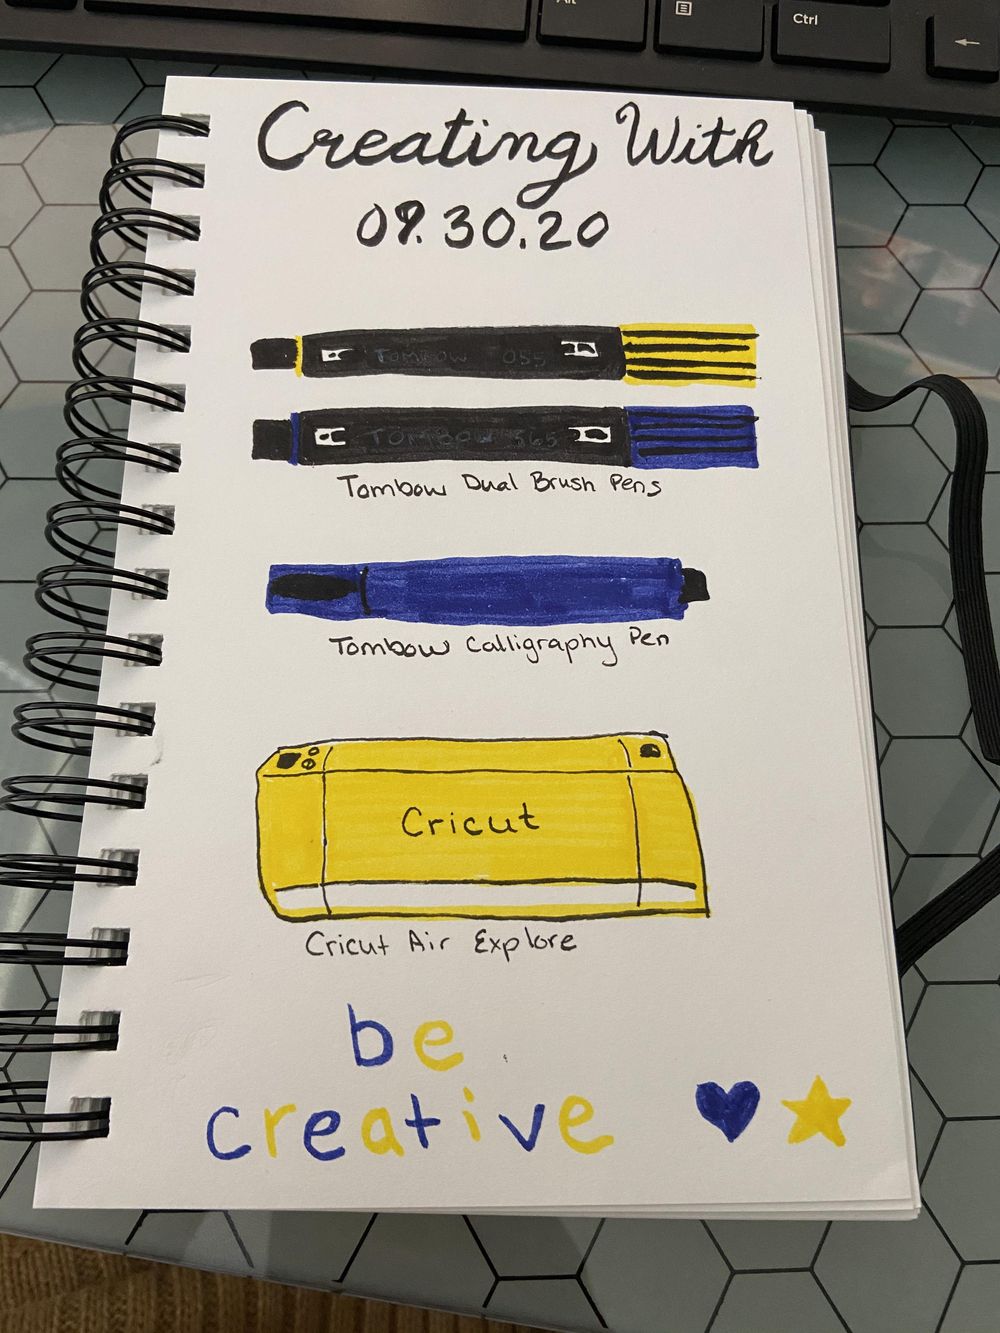 Alt
Ctrl
Creating With
09.30.20
TOMBOW 055
TOMBOW 565
Tombow Dual Brush Pens
Tombow Calligraphy Pen
Cricut
Cricut Air Explore
be
creative